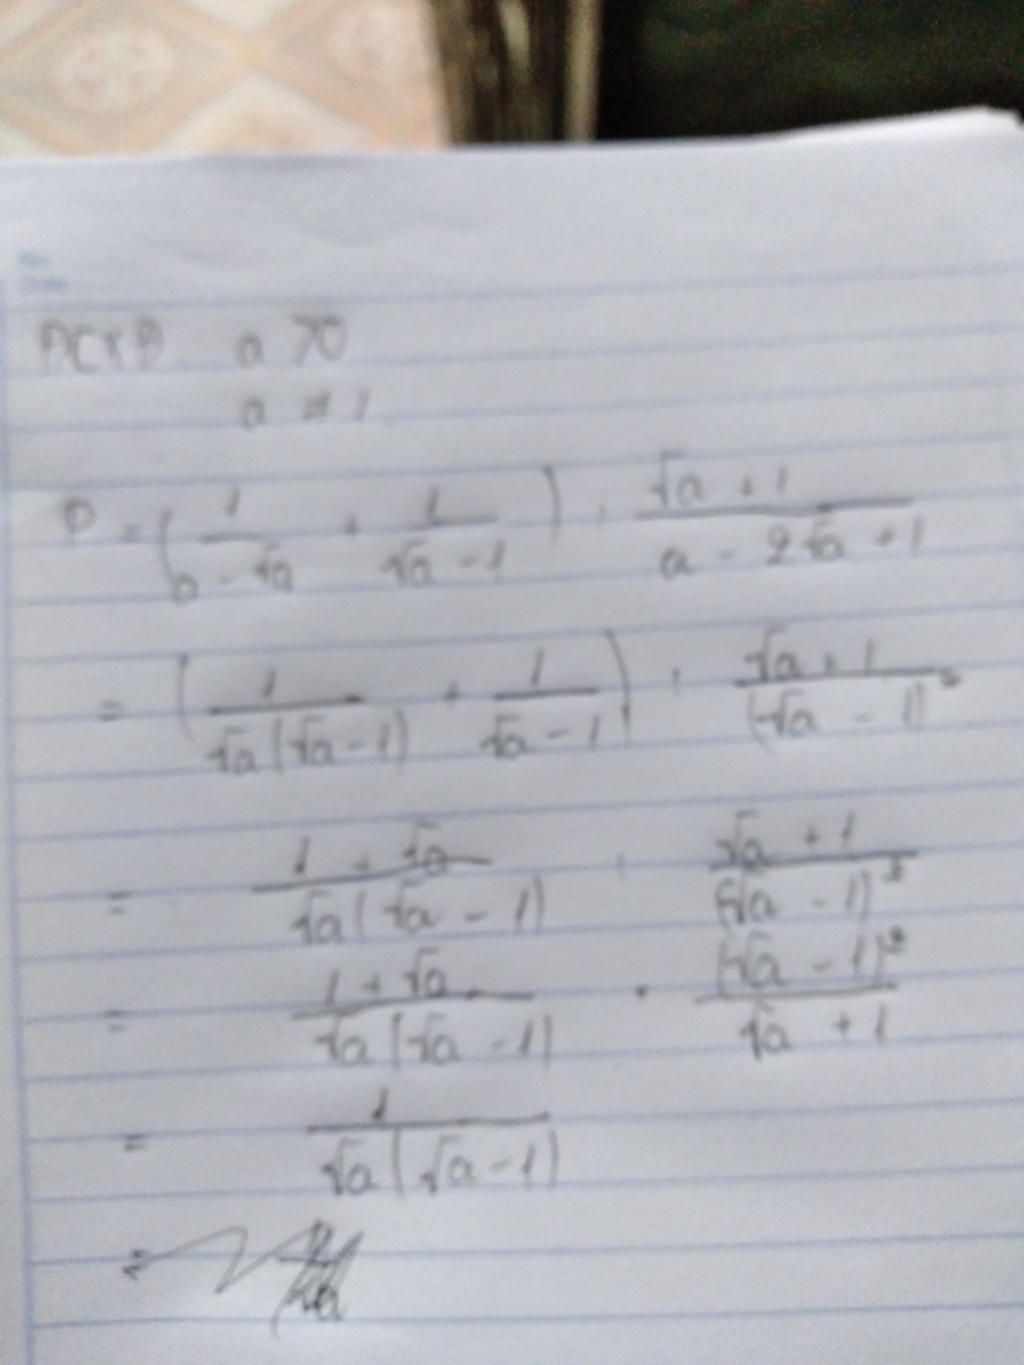 ĐKXĐ a > 0
a ≠ 1
P = ( 1/(a - √a) + 1/(√a - 1) ) : (√a + 1)/(a - 2√a + 1)
= ( 1/(√a(√a - 1)) + 1/(√a - 1) ) : (√a + 1)/(√a - 1)²
= (1 + √a)/(√a(√a - 1)) : (√a + 1)/(√a - 1)²
= (1 + √a)/(√a(√a - 1)) · (√a - 1)²/(√a + 1)
= 1/(√a(√a - 1))
=